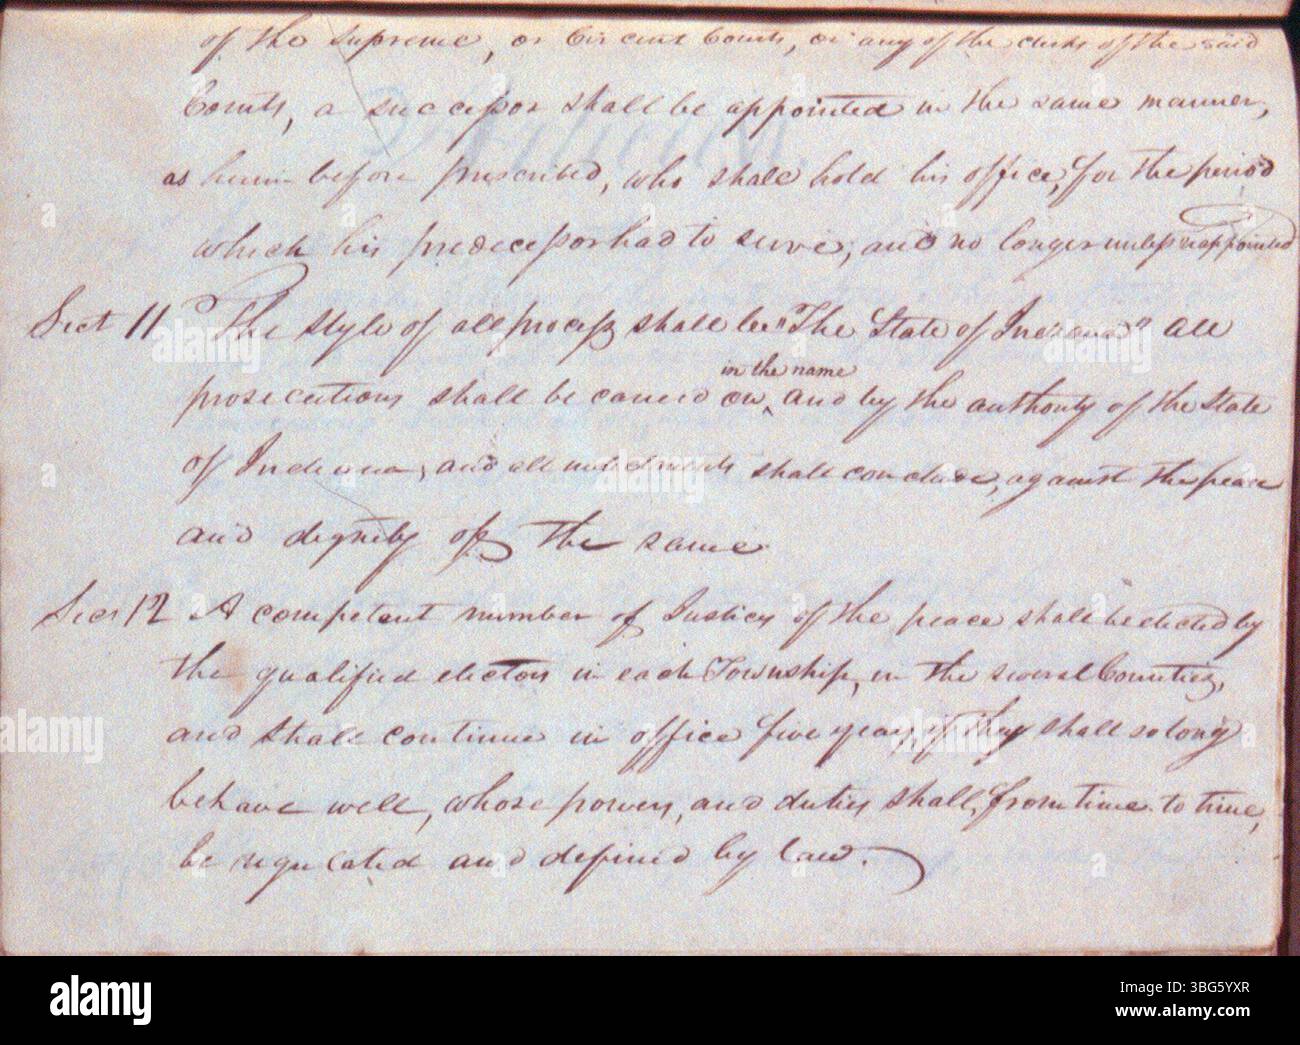 of the Supreme, or Circuit Courts, or any of the clerks of the said
Courts, a successor shall be appointed in the same manner,
as herein before prescribed, who shall hold his office, for the period
which his predecessor had to serve, and no longer unless reappointed
Sect 11 The style of all process shall be "The State of Indiana" all
in the name
prosecutions shall be carried on, and by the authority of the State
of Indiana, and all indictments shall conclude, against the peace
and dignity of the same.
Sect 12 A competent number of Justices of the peace shall be elected by
the qualified electors in each Township, in the several Counties,
and shall continue in office five years, if they shall so long
behave well, whose powers, and duties shall, from time to time,
be regulated and defined by law.
alamy
Image ID: 3BG5YXR
www.alamy.com